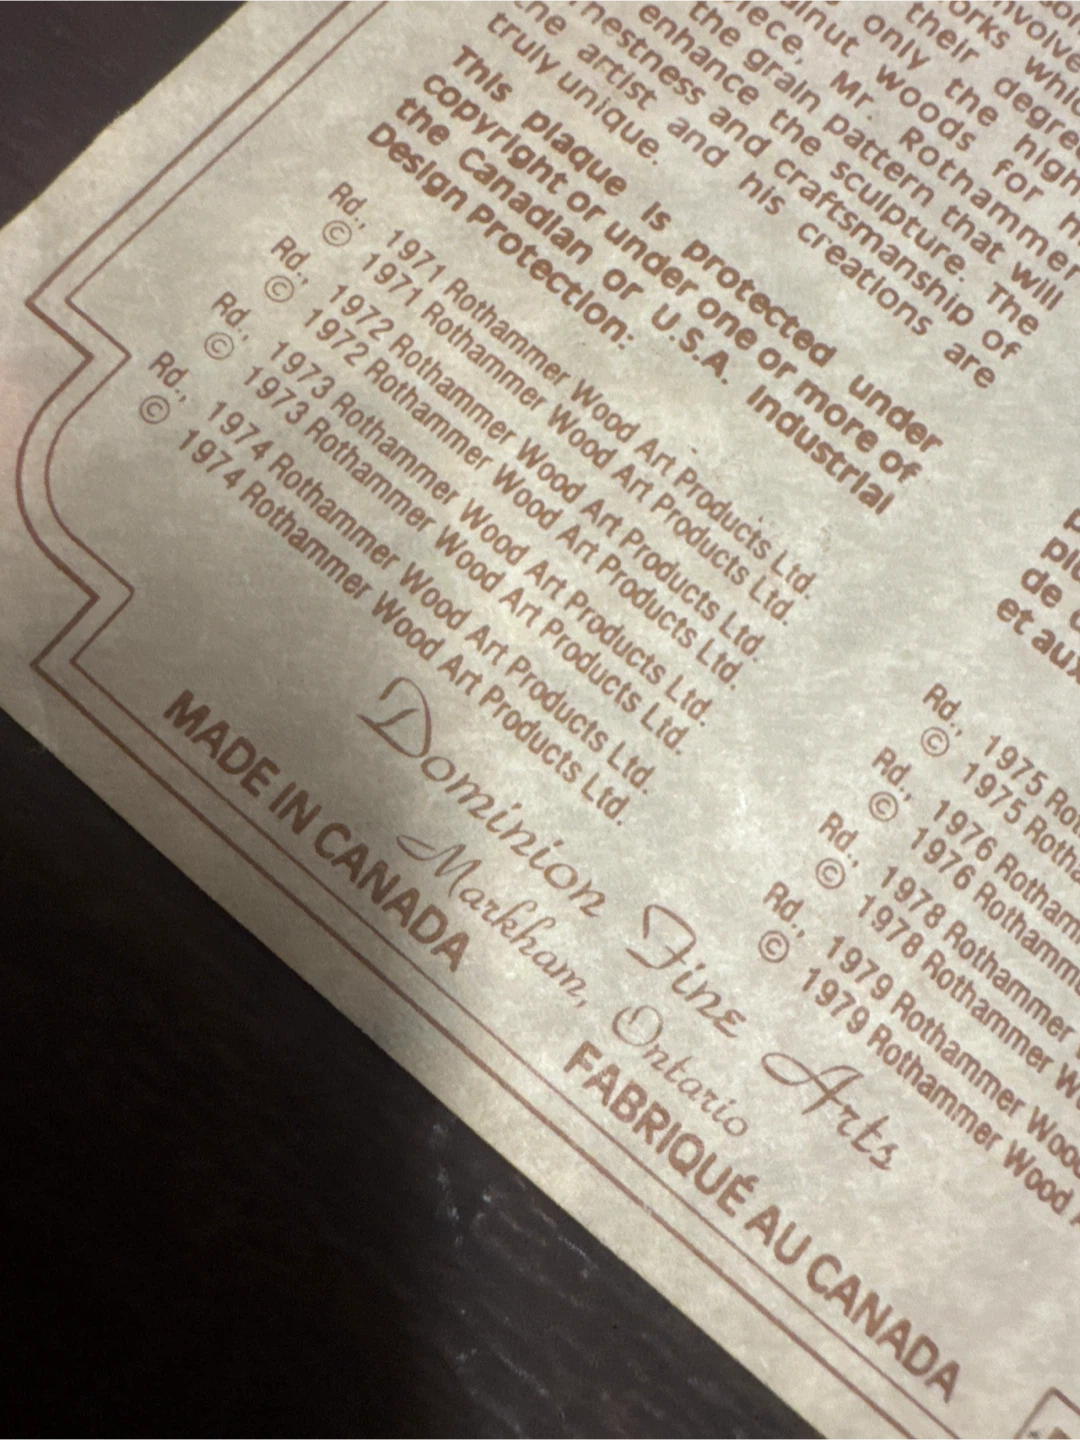 involve
orks whic
their degree
only the high
alnut woods for
iece, Mr. Rothammer
the grain pattern that will
enhance the sculpture. The
rnestness and craftsmanship of
the artist and his creations are
truly unique.
This plaque is protected under
copyright or under one or more of
the Canadian or U.S.A. Industrial
Design Protection:
Rd., 1971 Rothammer Wood Art Products Ltd.
© 1971 Rothammer Wood Art Products Ltd.
Rd., 1972 Rothammer Wood Art Products Ltd.
© 1972 Rothammer Wood Art Products Ltd.
Rd., 1973 Rothammer Wood Art Products Ltd.
© 1973 Rothammer Wood Art Products Ltd.
Rd., 1974 Rothammer Wood Art Products Ltd.
© 1974 Rothammer Wood Art Products Ltd.
de
et aux
Rd., 1975 Rot
© 1975 Rotha
Rd., 1976 Rotham
© 1976 Rothamm
Rd., 1978 Rothammer
© 1978 Rothammer W
Rd., 1979 Rothammer Wood
© 1979 Rothammer Wood A
Dominion Fine Arts
Markham, Ontario
MADE IN CANADA FABRIQUÉ AU CANADA